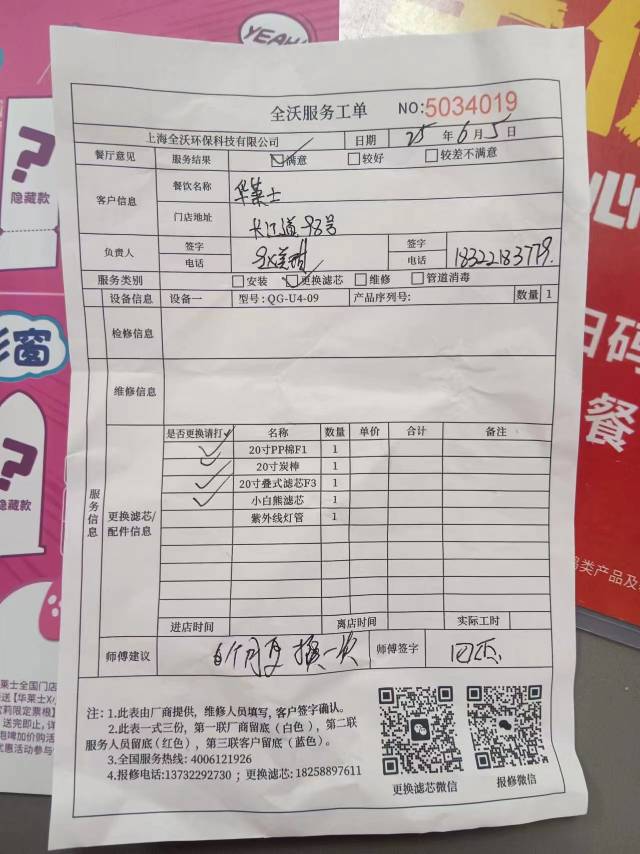 YEAH!
全沃服务工单 NO:5034019
上海全沃环保科技有限公司 日期 25 年 6 月 5 日
餐厅意见 服务结果 ☑满意 □较好 □较差不满意
客户信息 餐饮名称 华莱士
门店地址 长江道98号
负责人 签字 签字
电话 电话 18322183779.
服务类别 □安装 ☑更换滤芯 □维修 □管道消毒
设备信息 设备一 型号:QG-U4-09 产品序列号: 数量 1
检修信息
维修信息
服务信息
更换滤芯/配件信息
是否更换请打✓ 名称 数量 单价 合计 备注
✓ 20寸PP棉F1 1
✓ 20寸炭棒 1
✓ 20寸叠式滤芯F3 1
✓ 小白熊滤芯 1
紫外线灯管 1
进店时间 离店时间 实际工时
师傅建议 6个月 换一次 师傅签字
注:1.此表由厂商提供,维修人员填写,客户签字确认。
2.此表一式三份,第一联厂商留底(白色),第二联
服务人员留底(红色),第三联客户留底(蓝色)。
3.全国服务热线:4006121926
4.报修电话:13732292730;更换滤芯:18258897611
更换滤芯微信 报修微信
?
隐藏款
彩窗
?
隐藏款
莱士全国门店
送【华莱士X
莉限定票根】
送完即止,详
优惠活动参与
1
心
扫码
餐
类产品及